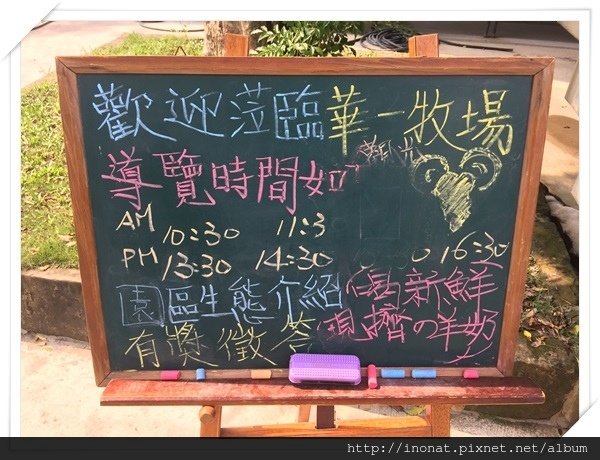 歡迎蒞臨華一牧場
導覽時間如
AM 10:30 11:3
PM 13:30 14:30 0 16:30
園區生態介紹
喝新鮮
有獎徵答
現擠の羊奶
http://inonat.pixnet.net/album